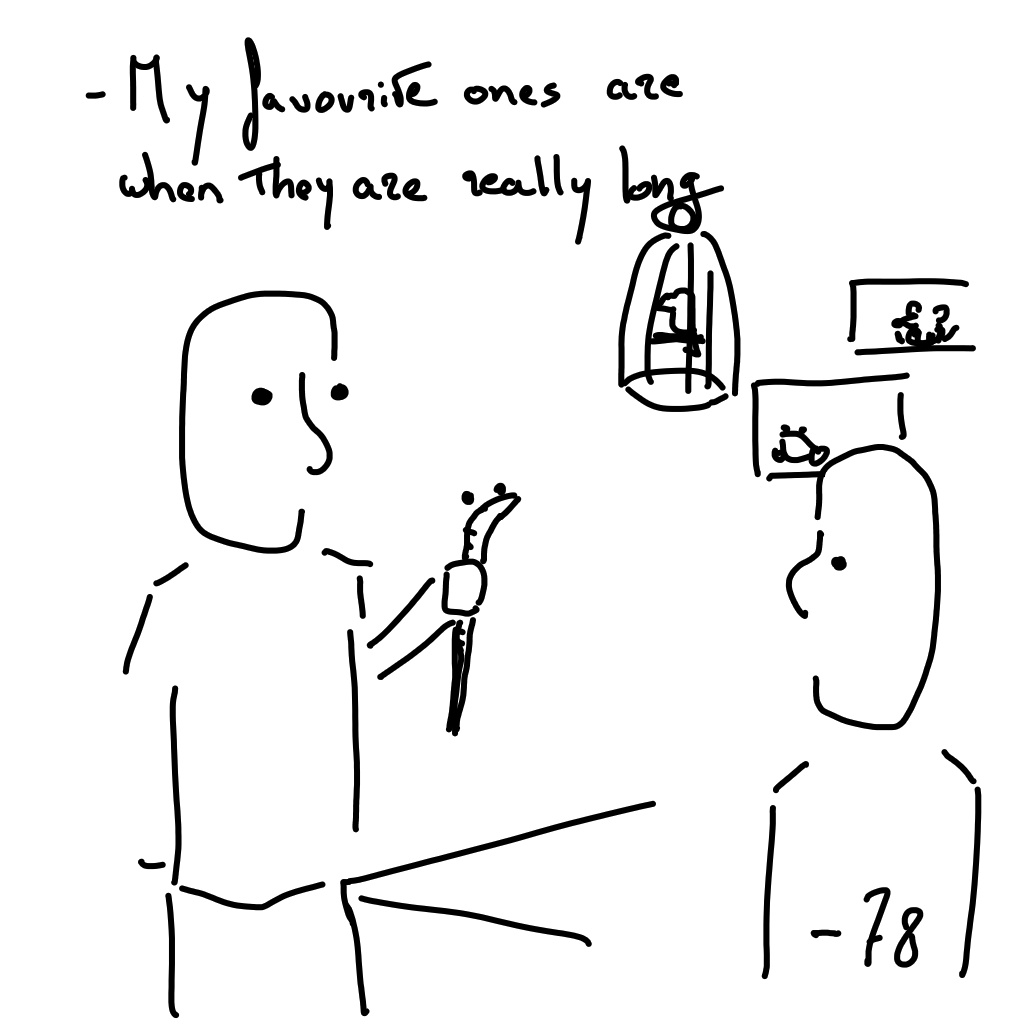 - My favourite ones are
when they are really long
-78